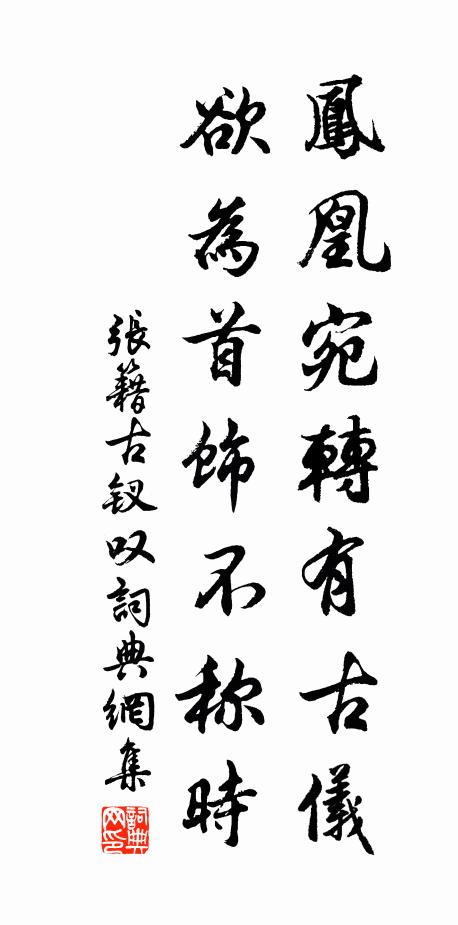 鳳凰宛轉有古儀
欲為首飾不称時
張籍古钗叹詞典網集
詞典网印